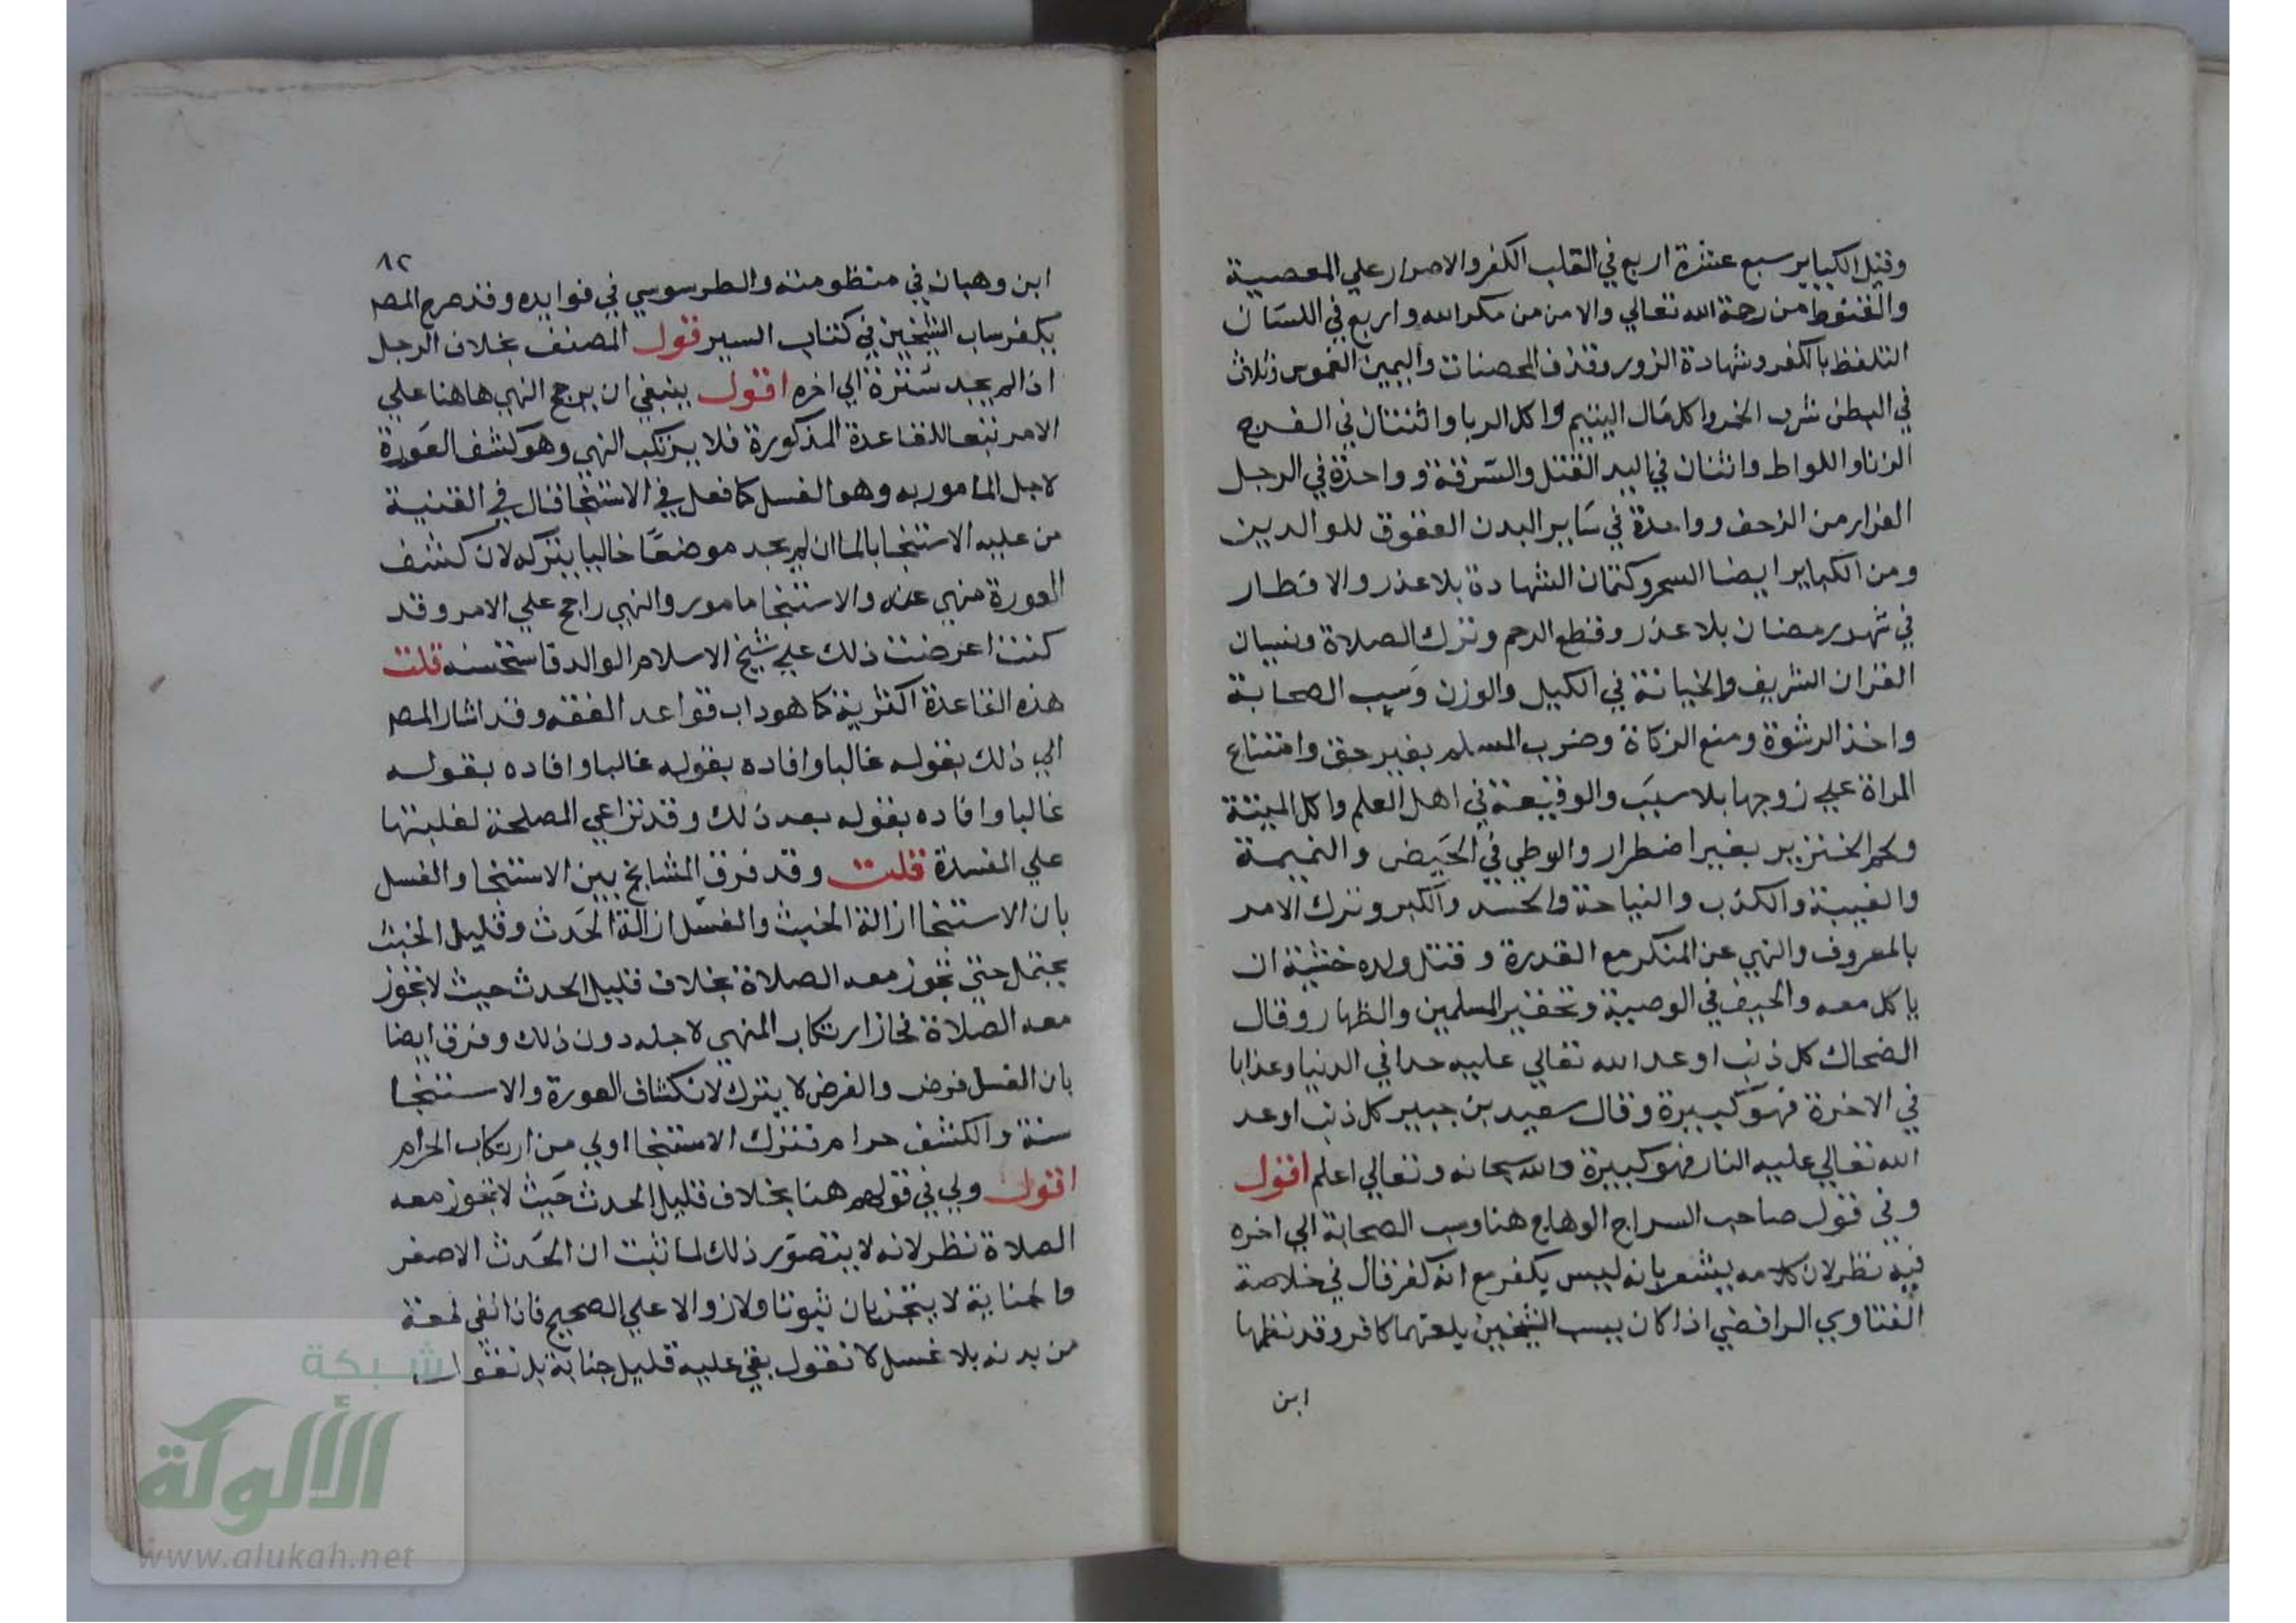 وقيل الكباير سبع عشرة اربع في القلب الكفر والاصرار علي المعصية
والقنوط من رحمة الله تعالي والامن من مكر الله واربع في اللسان
التلفظ بالكفر وشهادة الزور وقذف المحصنات واليمين الغموس وثلاث
في البطن شرب الخمر واكل مال اليتيم واكل الربا واثنتان في الفرج
الزنا واللواط واثنتان في اليد القتل والسرقة وواحدة في الرجل
الفرار من الزحف وواحدة في ساير البدن العقوق للوالدين
ومن الكباير ايضا السحر وكتمان الشهادة بلا عذر والافطار
في شهر رمضان بلا عذر وقطع الرحم وترك الصلاة ونسيان
القران الشريف والخيانة في الكيل والوزن وسب الصحابة
واخذ الرشوة ومنع الزكاة وضرب المسلم بغير حق وامتناع
المراة علي زوجها بلا سبب والوقيعة في اهل العلم واكل الميتة
ولحم الخنزير بغير اضطرار والوطي في الحيض والنميمة
والغيبة والكذب والنياحة والحسد والكبر وترك الامر
بالمعروف والنهي عن المنكر مع القدرة وقتل ولده خشية ان
ياكل معه والحيف في الوصية وتحقير المسلمين والظهار وقال
الضحاك كل ذنب اوعد الله تعالي عليه حدا في الدنيا وعذابا
في الاخرة فهو كبيرة وقال سعيد بن جبير كل ذنب اوعد
الله تعالي عليه النار فهو كبيرة والله سبحانه وتعالي اعلم اقول
وفي قول صاحب السراج الوهاج هنا وسب الصحابة الي اخره
فيه نظر لان كلامه يشعر بانه ليس يكفر مع انه كفر قال في خلاصة
الفتاوي الرافضي اذا كان يسب الشيخين يلعنهما كافر وقد نظمها
ابن
٨٢
ابن وهبان في منظومته والطرسوسي في فوايده وقد صرح المصـ
بكفر ساب الشيخين في كتاب السير قول المصنف بخلاف الرجل
اذا لم يجد سترة الي اخره اقول ينبغي ان يرجح النهي هاهنا علي
الامر تبعا للقاعدة المذكورة فلا يرتكب النهي وهو كشف العورة
لاجل المامور به وهو الغسل كما فعل في الاستنجا قال في القنية
من عليه الاستنجا بالما ان لم يجد موضعا خاليا يتركه لان كشف
العورة منهي عنه والاستنجا مامور والنهي راجح علي الامر وقد
كنت اعرضت ذلك علي شيخ الاسلام الوالد فاستحسنه قلت
هذه القاعدة اكثرية كما هو داب قواعد الفقه وقد اشار المصـ
الي ذلك بقوله غالبا وافاده بقوله غالبا وافاده بقوله
غالبا وافاده بقوله بعد ذلك وقد تراعي المصلحة لغلبتها
علي المفسدة قلت وقد فرق المشايخ بين الاستنجا والغسل
بان الاستنجا ازالة الخبث والغسل ازالة الحدث وقليل الخبث
يحتمل حتي تجوز معه الصلاة بخلاف قليل الحدث حيث لا تجوز
معه الصلاة فجاز ارتكاب المنهي لاجله دون ذلك وفرق ايضا
بان الغسل فرض والفرض لا يترك لانكشاف العورة والاستنجا
سنة والكشف حرام فترك الاستنجا اولي من ارتكاب الحرام
اقول ولي في قولهم هنا بخلاف قليل الحدث حيث لا تجوز معه
الصلاة نظر لانه لا يتصور ذلك لما ثبت ان الحدث الاصغر
والجنابة لا يتجزيان ثبوتا ولا زوالا علي الصحيح فاذا بقي لمعة
من بدنه بلا غسل لا نقول بقي عليه قليل جنابة بل نقول
شبكة
الألوكة
www.alukah.net